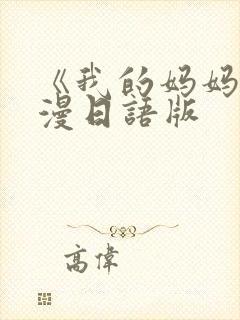 《我的妈妈
漫日語版
高偉